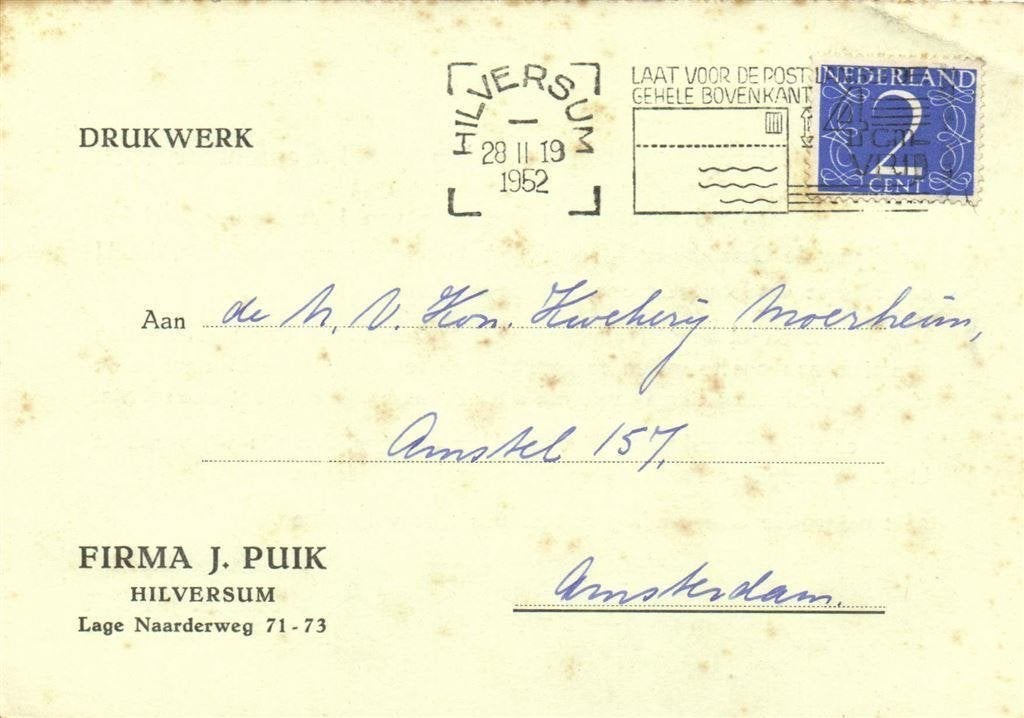 DRUKWERK
HILVERSUM
28 II 19
1952
LAAT VOOR DE POST
GEHELE BOVENKANT
NEDERLAND
2
CENT
Aan de N.V. Kon. Kwekerij Moerheim,
Amstel 157.
Amsterdam.
FIRMA J. PUIK
HILVERSUM
Lage Naarderweg 71-73